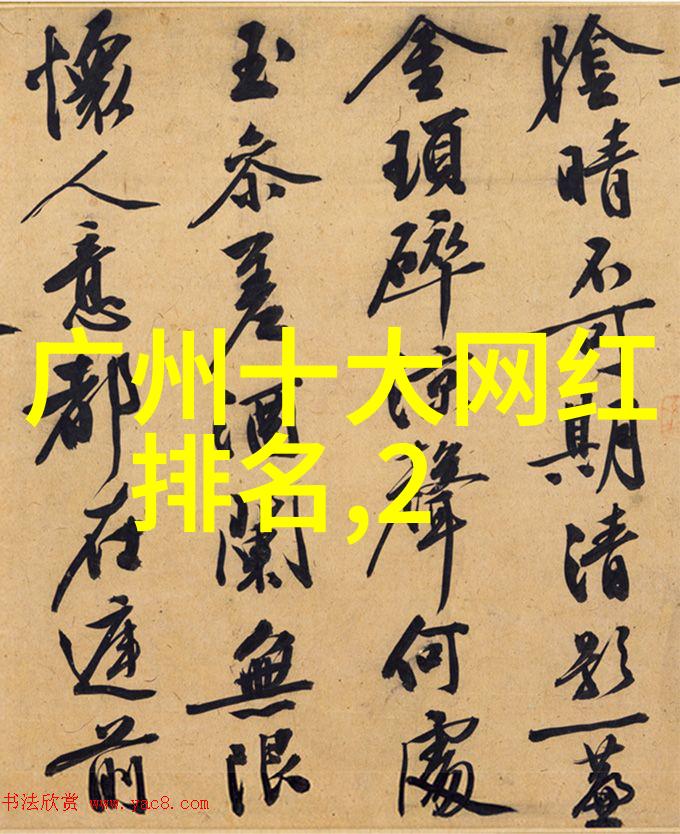 陰晴不可期清影一
金瑣碎涼聲何處
玉參差酒闌無限
懷人意都在庭前
广州十大网红
排名,2
书法欣赏 www.yac8.com